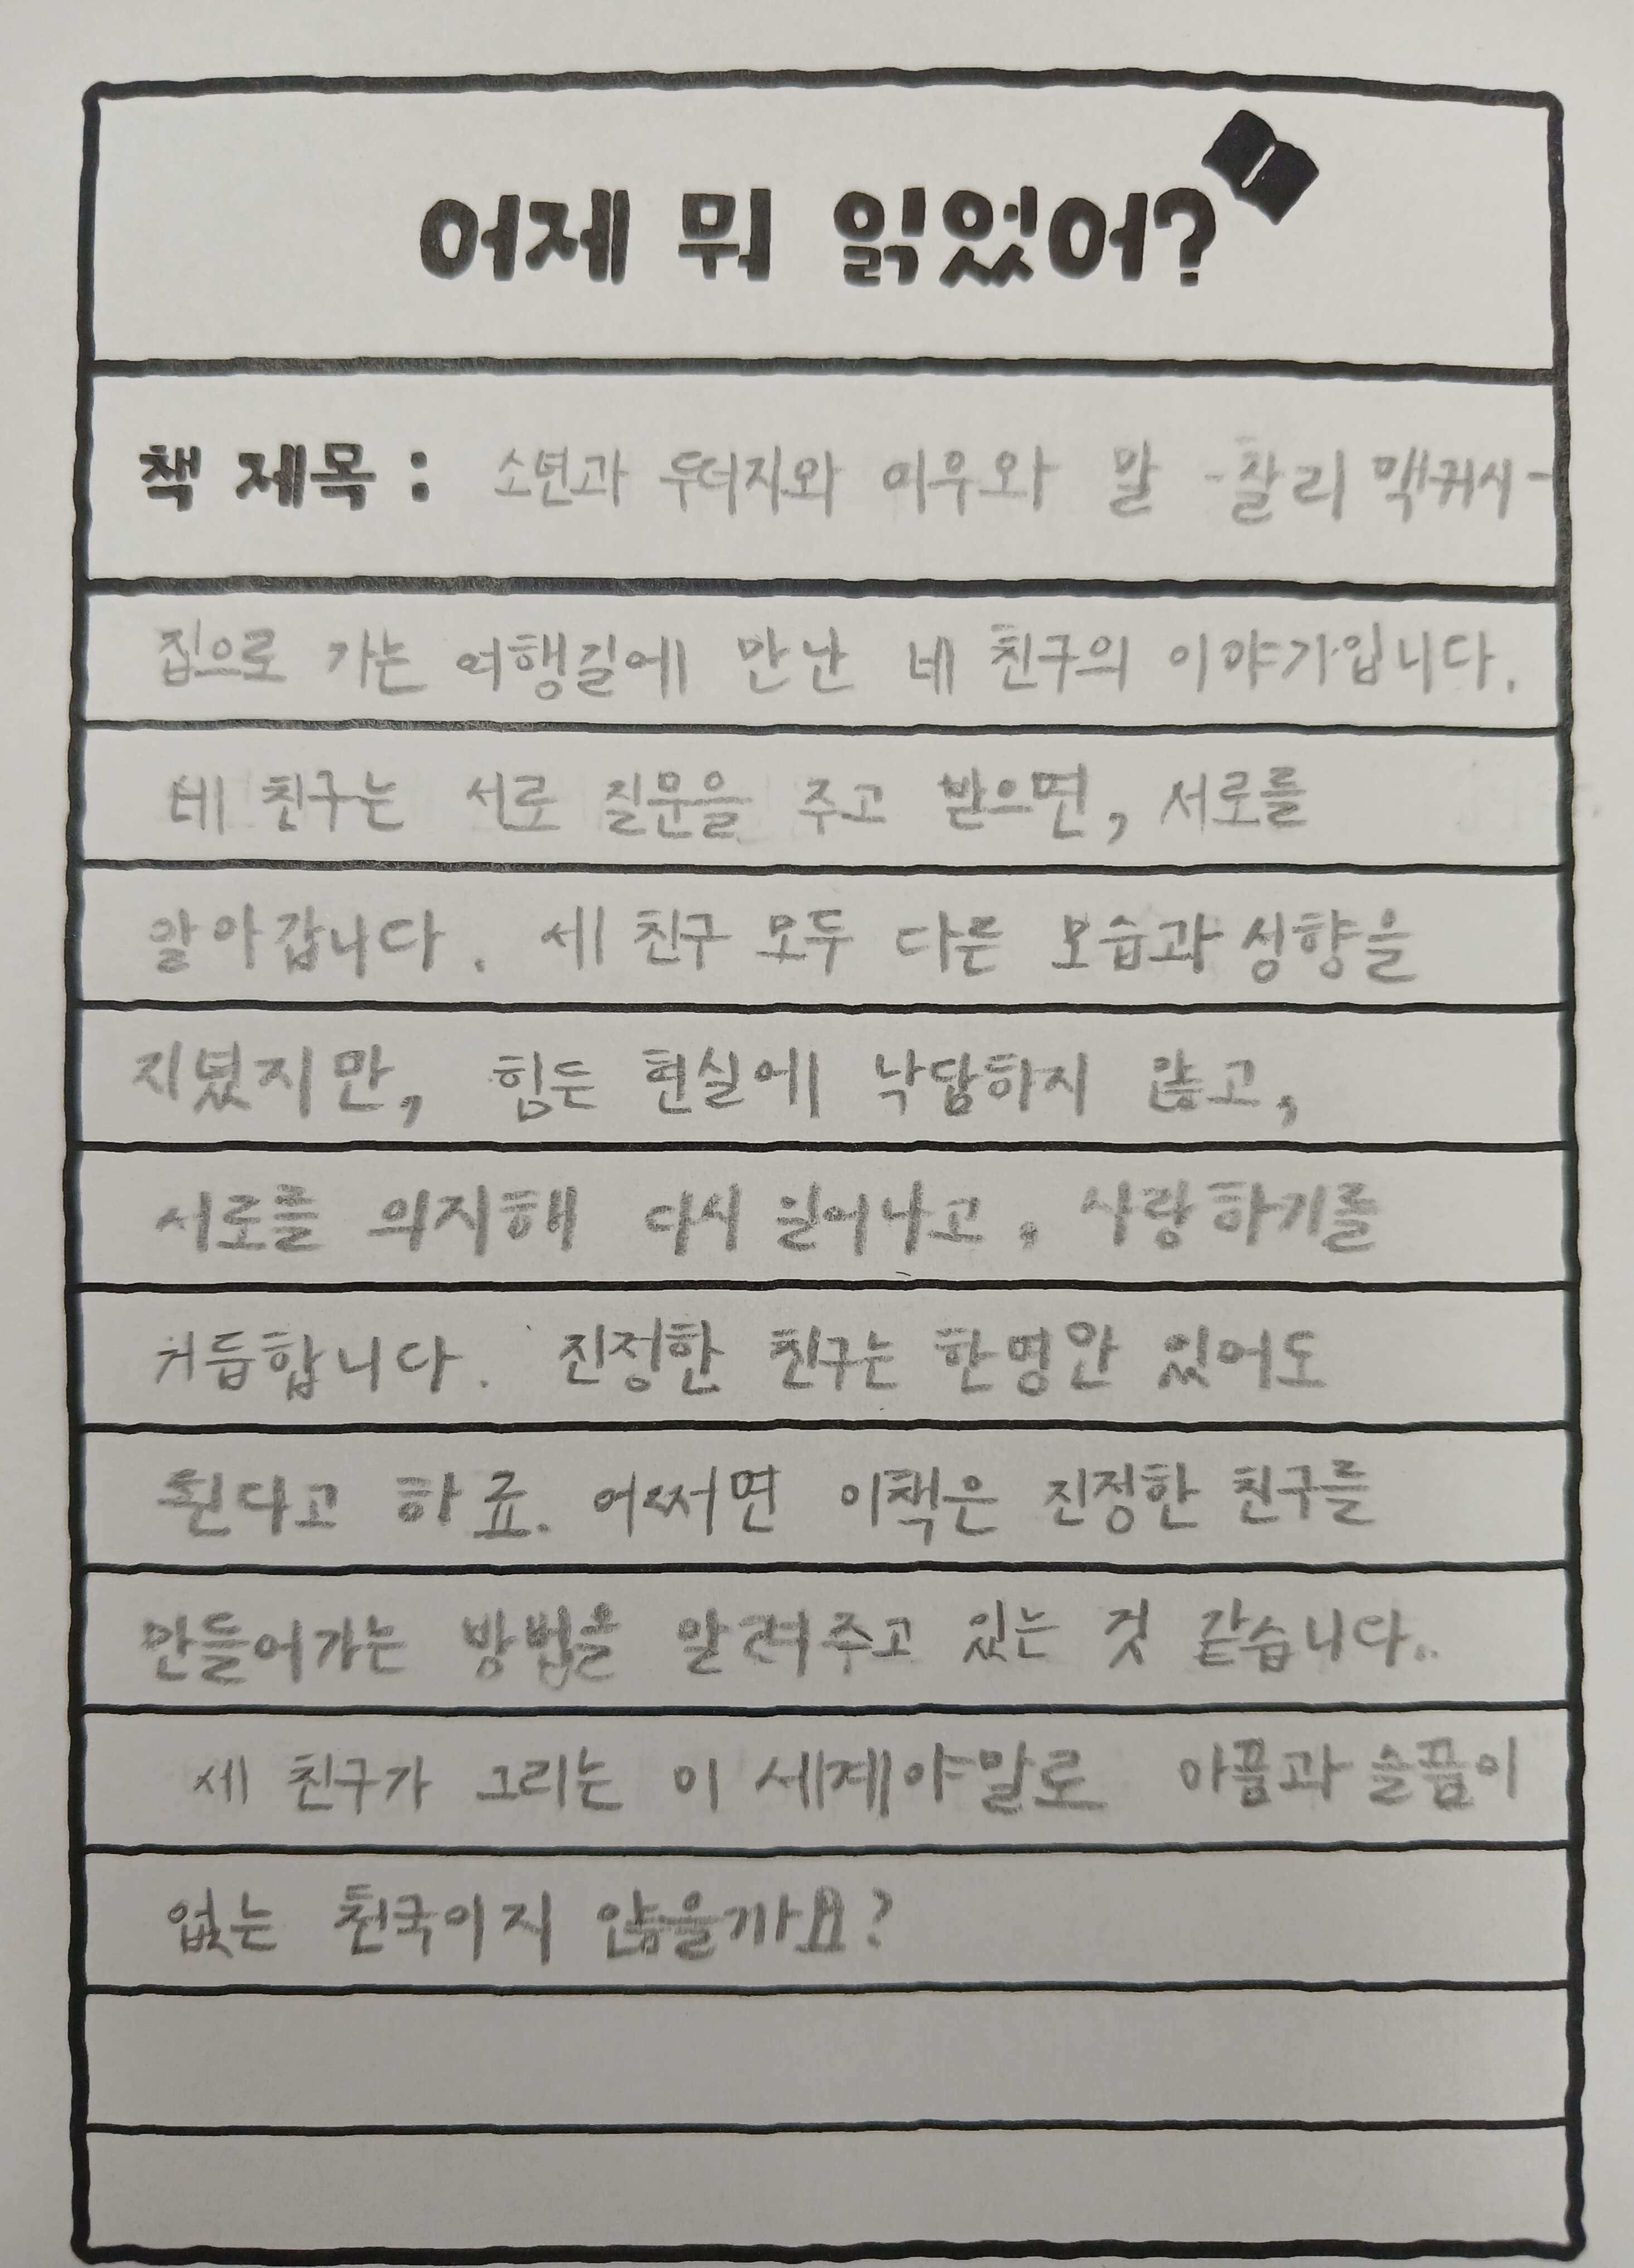 어제 뭐 읽었어?
책 제목 : 소년과 두더지와 여우와 말 -찰리 맥커시-
집으로 가는 여행길에 만난 네 친구의 이야기입니다.
네 친구는 서로 질문을 주고 받으면, 서로를
알아갑니다. 세 친구 모두 다른 모습과 성향을
지녔지만, 힘든 현실에 낙담하지 않고,
서로를 의지해 다시 일어나고, 사랑하기를
거듭합니다. 진정한 친구는 한명만 있어도
된다고 하죠. 어쩌면 이책은 진정한 친구를
만들어가는 방법을 알려주고 있는 것 같습니다..
세 친구가 그리는 이 세계야말로 아픔과 슬픔이
없는 천국이지 않을까요?